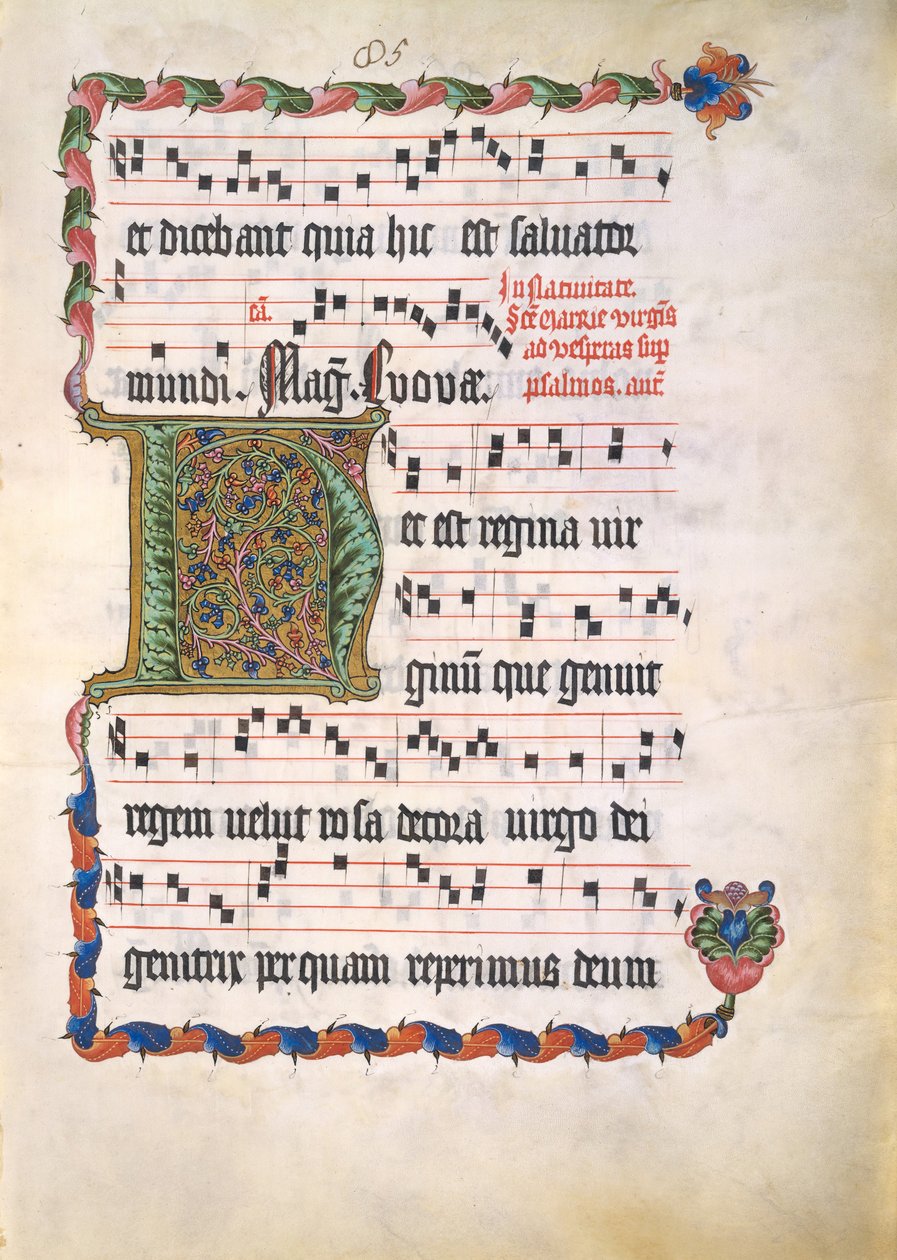 85
et dicebant quia hic est saluator
cā.
mundi. Mag̅. Euouae.
In Natiuitate.
Scē Marie virgīs
ad vesperas sup
psalmos. ant̄.
Hec est regina uir
ginū que genuit
regem uelut rosa decora uirgo dei
genitrix per quam reperimus deum